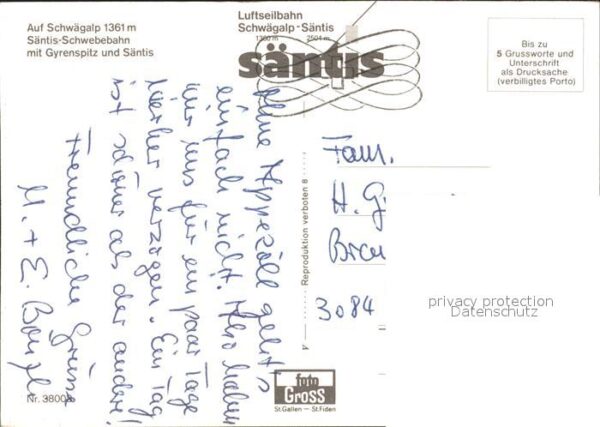 Auf Schwägalp 1361 m
Säntis-Schwebebahn
mit Gyrenspitz und Säntis
Luftseilbahn
Schwägalp-Säntis
1360 m 2504 m
säntis
Bis zu
5 Grussworte und
Unterschrift
als Drucksache
(verbilligtes Porto)
Ohne Appezöll geht's
einfach nicht. Also haben
wir uns für ein paar Tage
hierher verzogen. Ein Tag
ist schöner als der andere!
Freundliche Grüsse
M. + E.
Fam.
H. G
3084
Reproduktion verboten 8
privacy protection
Datenschutz
foto
GROSS
St.Gallen — St.Fiden
Nr. 38008